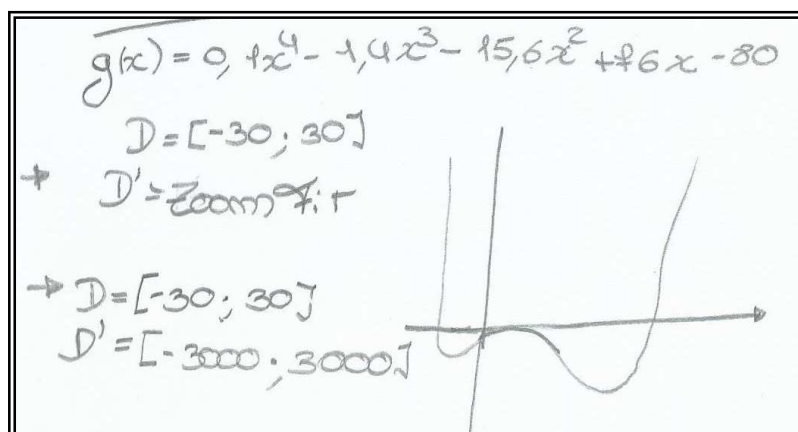 g(x) = 0,1x⁴ - 1,4x³ - 15,6x² + 76x - 80
D = [-30 ; 30]
→ D' = Zoom Fit
→ D = [-30 ; 30]
D' = [-3000 ; 3000]